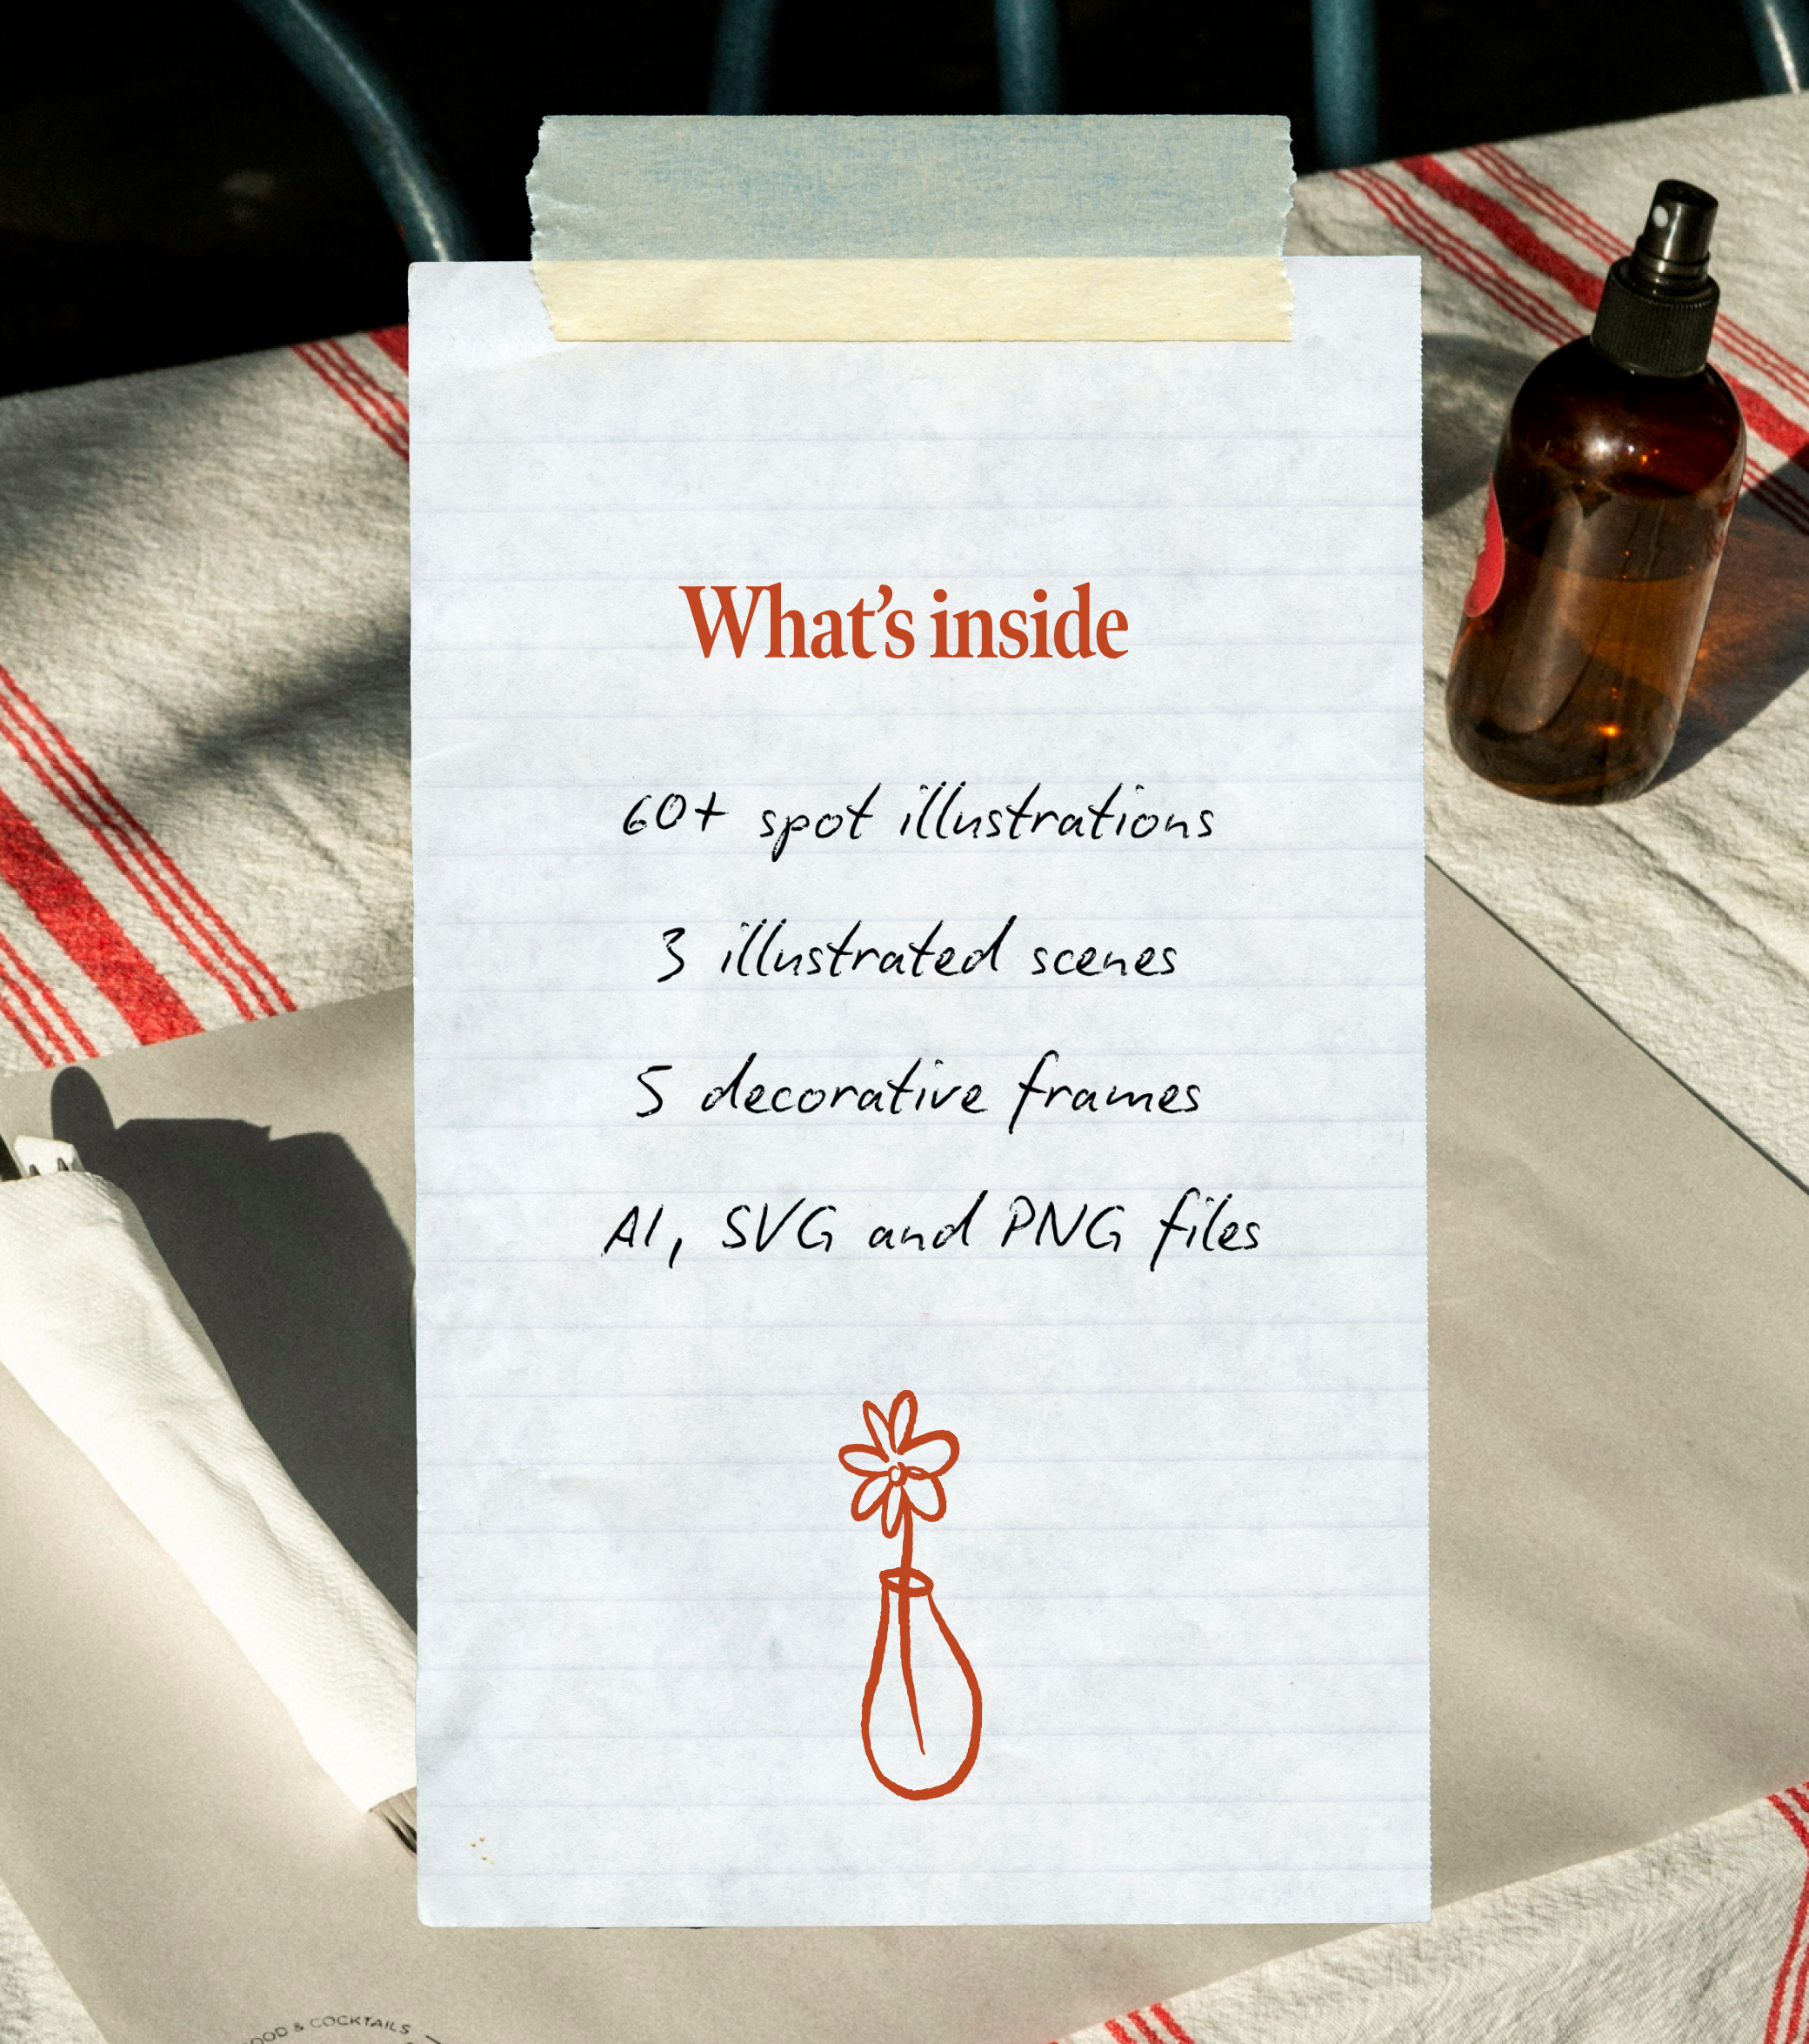 What’s inside
60+ spot illustrations
3 illustrated scenes
5 decorative frames
AI, SVG and PNG files
& COCKTAILS